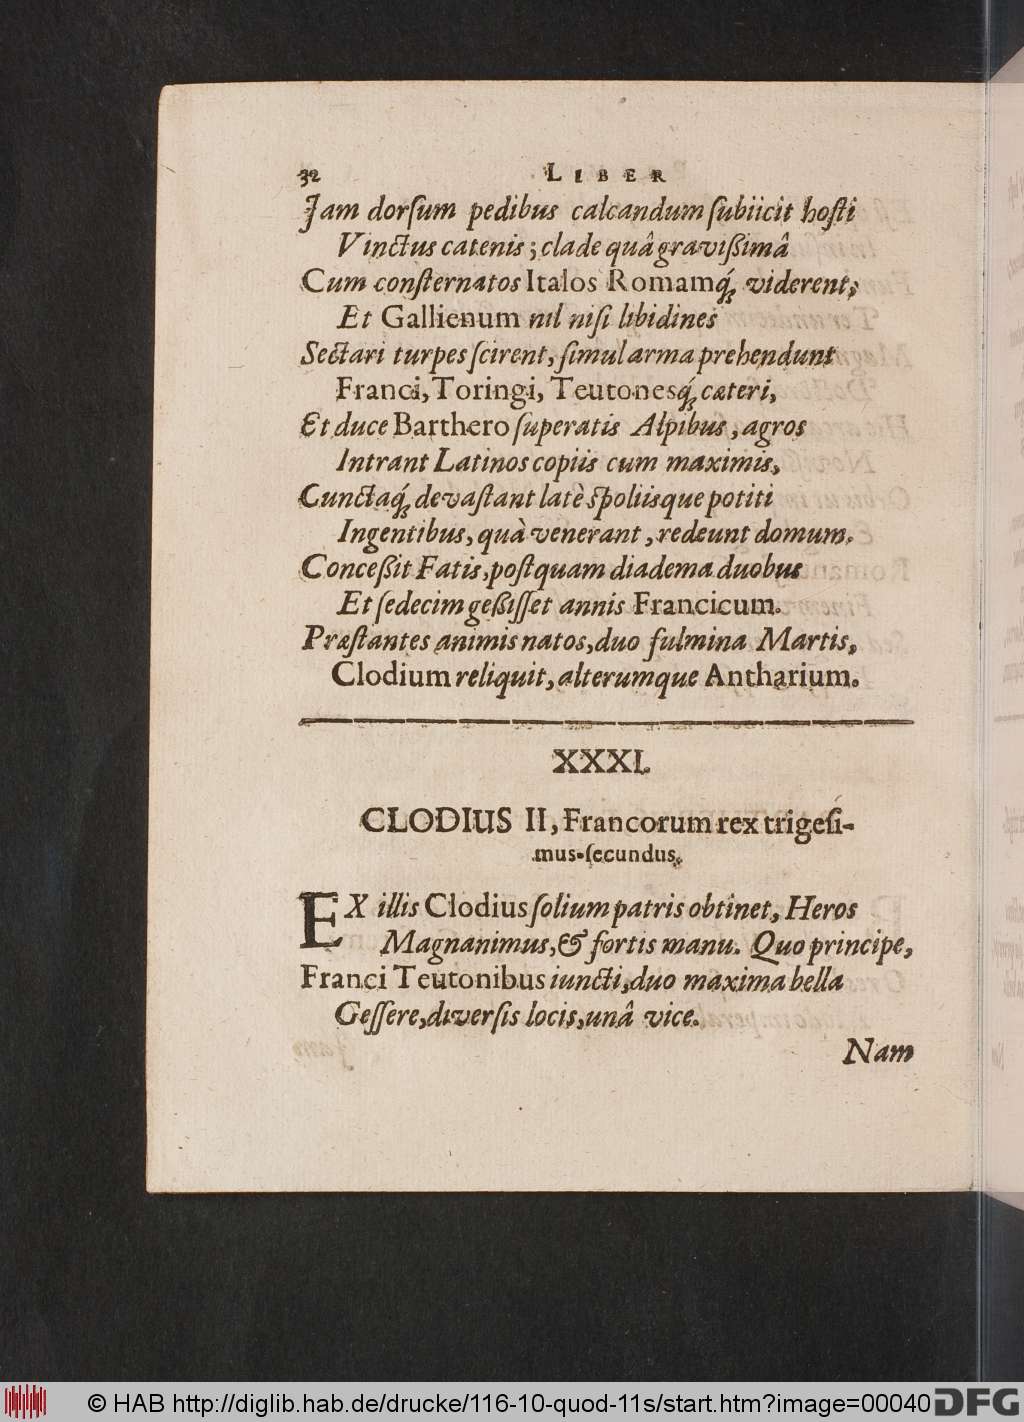 32 LIBER
Jam dorſum pedibus calcandum ſubiicit hoſti
Vinctus catenis; clade quâ graviſſimâ
Cum conſternatos Italos Romamq́; viderent;
Et Gallienum nil niſi libidines
Sectari turpes ſcirent, ſimul arma prehendunt
Franci, Toringi, Teutonesq́; cæteri,
Et duce Barthero ſuperatis Alpibus, agros
Intrant Latinos copiis cum maximis,
Cunctaq́; devaſtant latè ſpoliisque potiti
Ingentibus, quà venerant, redeunt domum.
Conceßit Fatis, poſtquam diadema duobus
Et ſedecim geßiſſet annis Francicum.
Præſtantes animis natos, duo fulmina Martis,
Clodium reliquit, alterumque Antharium.
XXXI.
CLODIUS II, Francorum rex trigeſi-
mus-ſecundus.
EX illis Clodius ſolium patris obtinet, Heros
Magnanimus, & fortis manu. Quo principe,
Franci Teutonibus iuncti, duo maxima bella
Geſſere, diverſis locis, unâ vice.
Nam
© HAB http://diglib.hab.de/drucke/116-10-quod-11s/start.htm?image=00040 DFG